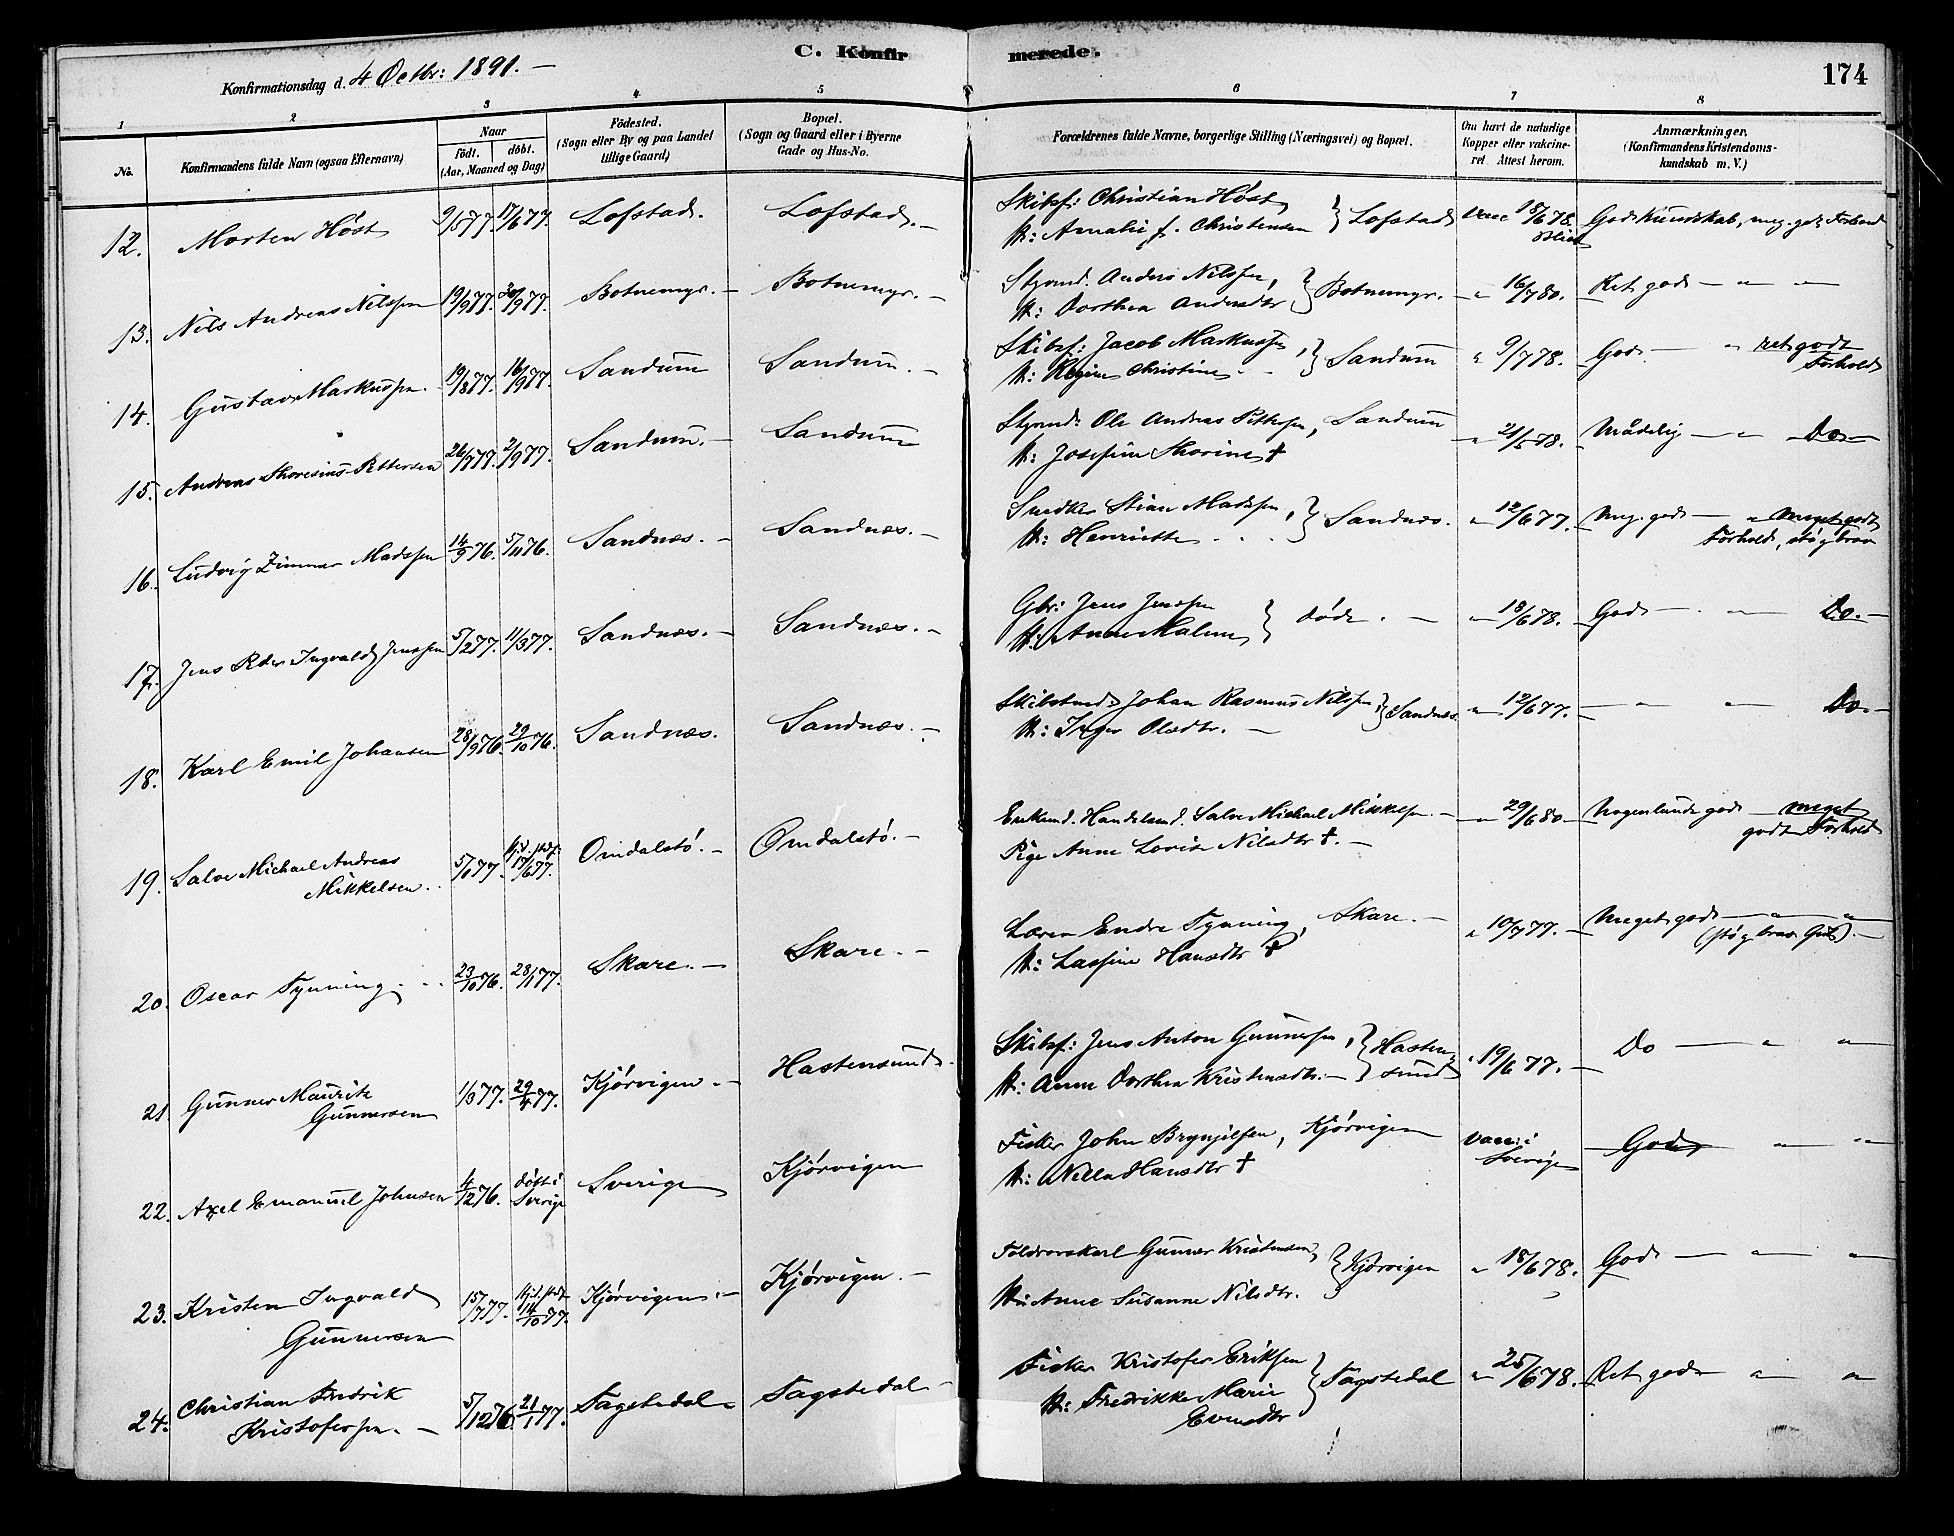 C. Konfirmerede.
174
Konfirmationsdag d. 4 Octbr: 1891. —
1 2 3 4 5 6 7 8
No. Konfirmandens fulde Navn (ogsaa Efternavn)
Naar födt. döbt. (Aar, Maaned og Dag)
Födested. (Sogn eller By og paa Landet tillige Gaard)
Bopæl. (Sogn og Gaard eller i Byerne Gade og Hus-No.
Forældrenes fulde Navne, borgerlige Stilling (Næringsvei) og Bopæl.
Om havt de naturlige Kopper eller vakcineret. Attest herom.
Anmærkninger. (Konfirmandens Kristendomskundskab m. V.)
12. Morten Høst 9/5 77. 17/6 77. Lofstad. Lofstad. —
Skibsf: Christian Høst
H: Amalie f. Christensen } Lofstad vacc 18/6 78. God Kundskab, meg. godt Forhold
13. Nils Andreas Nilssen 19/9 77. 30/9 77. Botnemyr. — Botnemyr. —
Styrmd. Anders Nilssen,
H: Dorthea Andersdtr } Botnemyr. — " 16/7 80. Ret god — " —
14. Gustav Markussen. 19/8 77. 16/9 77. Sandum Sandum. —
Skibsf: Jacob Markussen,
H: Regine Christine } Sandum " 9/7 78. God — " ret godt Forhold
15. Andreas Thoresius Pettersen 26/7 77. 2/9 77. Sandum. — Sandum
Styrmd: Ole Andreas Pettersen, Sandum
H: Josefine Thorine † " 21/5 78. Mådelig — " — Do —
16. Ludvig Zimmer Madssen 14/9 76. 5/11 76. Sandnæs. — Sandnæs. —
Snedker Stian Madssen,
H: Henriette . . . } Sandnæs. " 12/6 77. Meg. god — " Meget godt
Forhold, stø g brav
17. Jens Peder Ingvald Jenssen 5/2 77. 11/3 77. Sandnæs. — Sandnæs. —
Gbr: Jens Jenssen
H: Anne Malene } døde. — " 18/6 78. God — . — Do. —
18. Karl Emil Johansen 28/9 76. 29/10 76. Sandnæs. Sandnæs. —
Skibstmd: Johan Rasmus Nilssen
H: Inger Olsdtr. — } Sandnæs " 12/6 77. — " " Do. —
19. Salve Michael Andreas
Mikkelsen. 5/1 77. 17/6 77. Omdalstø. — Omdalstø. —
Enkemd. Handelsmd. Salve Michael Mikkelsen. —
Pige Anne Lovise Nilsdtr †. — " 29/6 80 — Nogenlunde god — meget
godt Forhold
20. Oscar Tynning . . . 23/10 76. 28/1 77. Skare. — Skare. —
Lærer Endre Tynning, Skare. —
H: Lassine Hansdtr † " 10/7 77. — Meget god — " "
(stø g brav Gut). —
21. Gunner Mauritz
Gunnersen 1/3 77. 29/4 77. Kjørvigen. — Hastensund.
Skibsf: Jens Anton Gunnersen,
H: Anne Dorthea Kristensdtr. — } Hastensund " 19/6 77. — Do — " "
22. Axel Emanuel Johnsen 4/12 76. døbt i Sverige Sverige Kjørvigen
Fisker John Brynjilsen, Kjørvigen
H: Nilla Hansdtr † vacc: i Sverige — God — " "
23. Kristen Ingvald
Gunnersen 15/7 77. 14/10 77. Kjørvigen. — Kjørvigen. —
Toldrorskarl Gunner Kristensen,
H: Anne Susanne Nilsdtr. } Kjørvigen " 18/6 78. God — " — "
24. Christian Fredrik
Kristofersen. — 5/12 76. 21/1 77. Tagstedal Tagstedal —
Fisker Kristofer Eriksen
H: Fredrikke Marie
Evensdtr } Tagstedal " 25/6 78. Ret god — " "